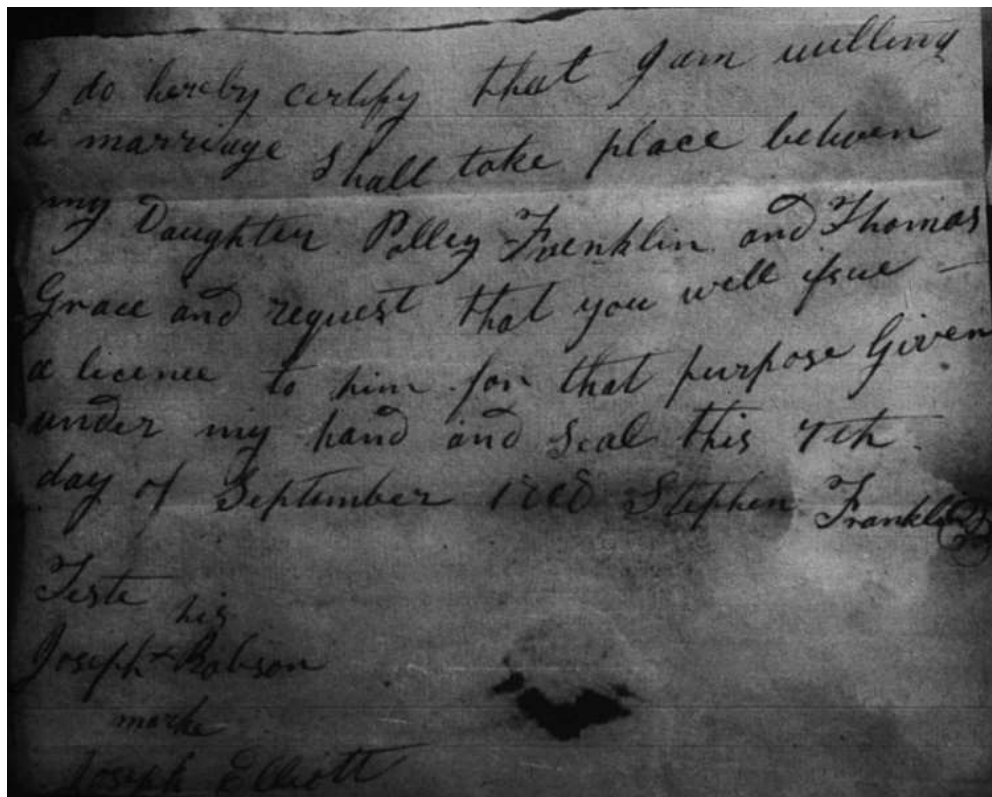 I do hereby certify that I am willing
a marriage shall take place between
my Daughter Polley Frenklin and Thomas
Grace and request that you well issue
a licence to him for that purpose Given
under my hand and seal this 7th
day of September 1808 Stephen Franklin
Teste
his
Joseph + Robson
marke
Joseph Elliott